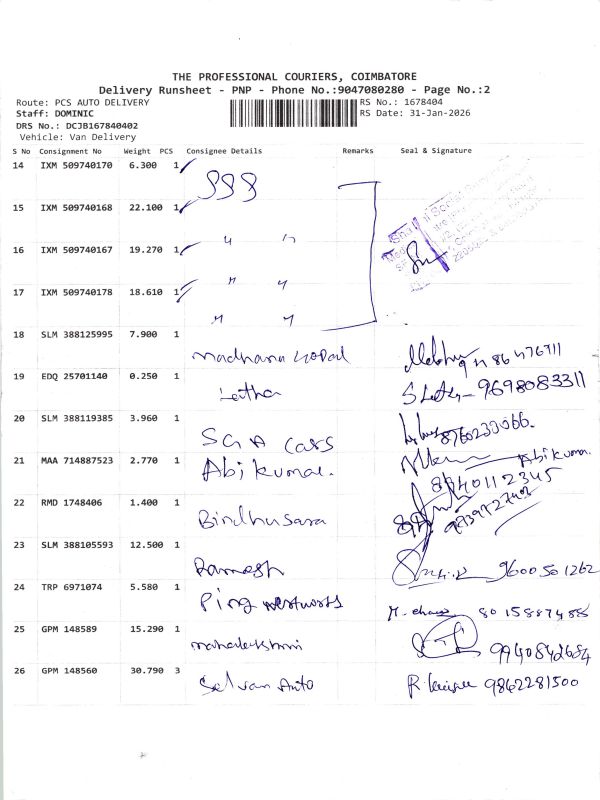 THE PROFESSIONAL COURIERS, COIMBATORE
Delivery Runsheet - PNP - Phone No.:9047080280 - Page No.:2
Route: PCS AUTO DELIVERY RS No.: 1678404
Staff: DOMINIC RS Date: 31-Jan-2026
DRS No.: DCJB167840402
Vehicle: Van Delivery
S No Consignment No Weight PCS Consignee Details Remarks Seal & Signature
14 IXM 509740170 6.300 1
15 IXM 509740168 22.100 1
16 IXM 509740167 19.270 1
17 IXM 509740178 18.610 1
18 SLM 388125995 7.900 1
Madhana Gopal
19 EDQ 25701140 0.250 1
Latha 9698083311
20 SLM 388119385 3.960 1
SGA Cars 8760233066.
21 MAA 714887523 2.770 1
Abi kumar. Abi kumar.
8940112345
22 RMD 1748406 1.400 1
Bindhusara
23 SLM 388105593 12.500 1
Ramesh 9600501262
24 TRP 6971074 5.580 1
Ping networks 8015887488
25 GPM 148589 15.290 1
mahalekshmi 9940842684
26 GPM 148560 30.790 3
Selvan Auto 9862281500